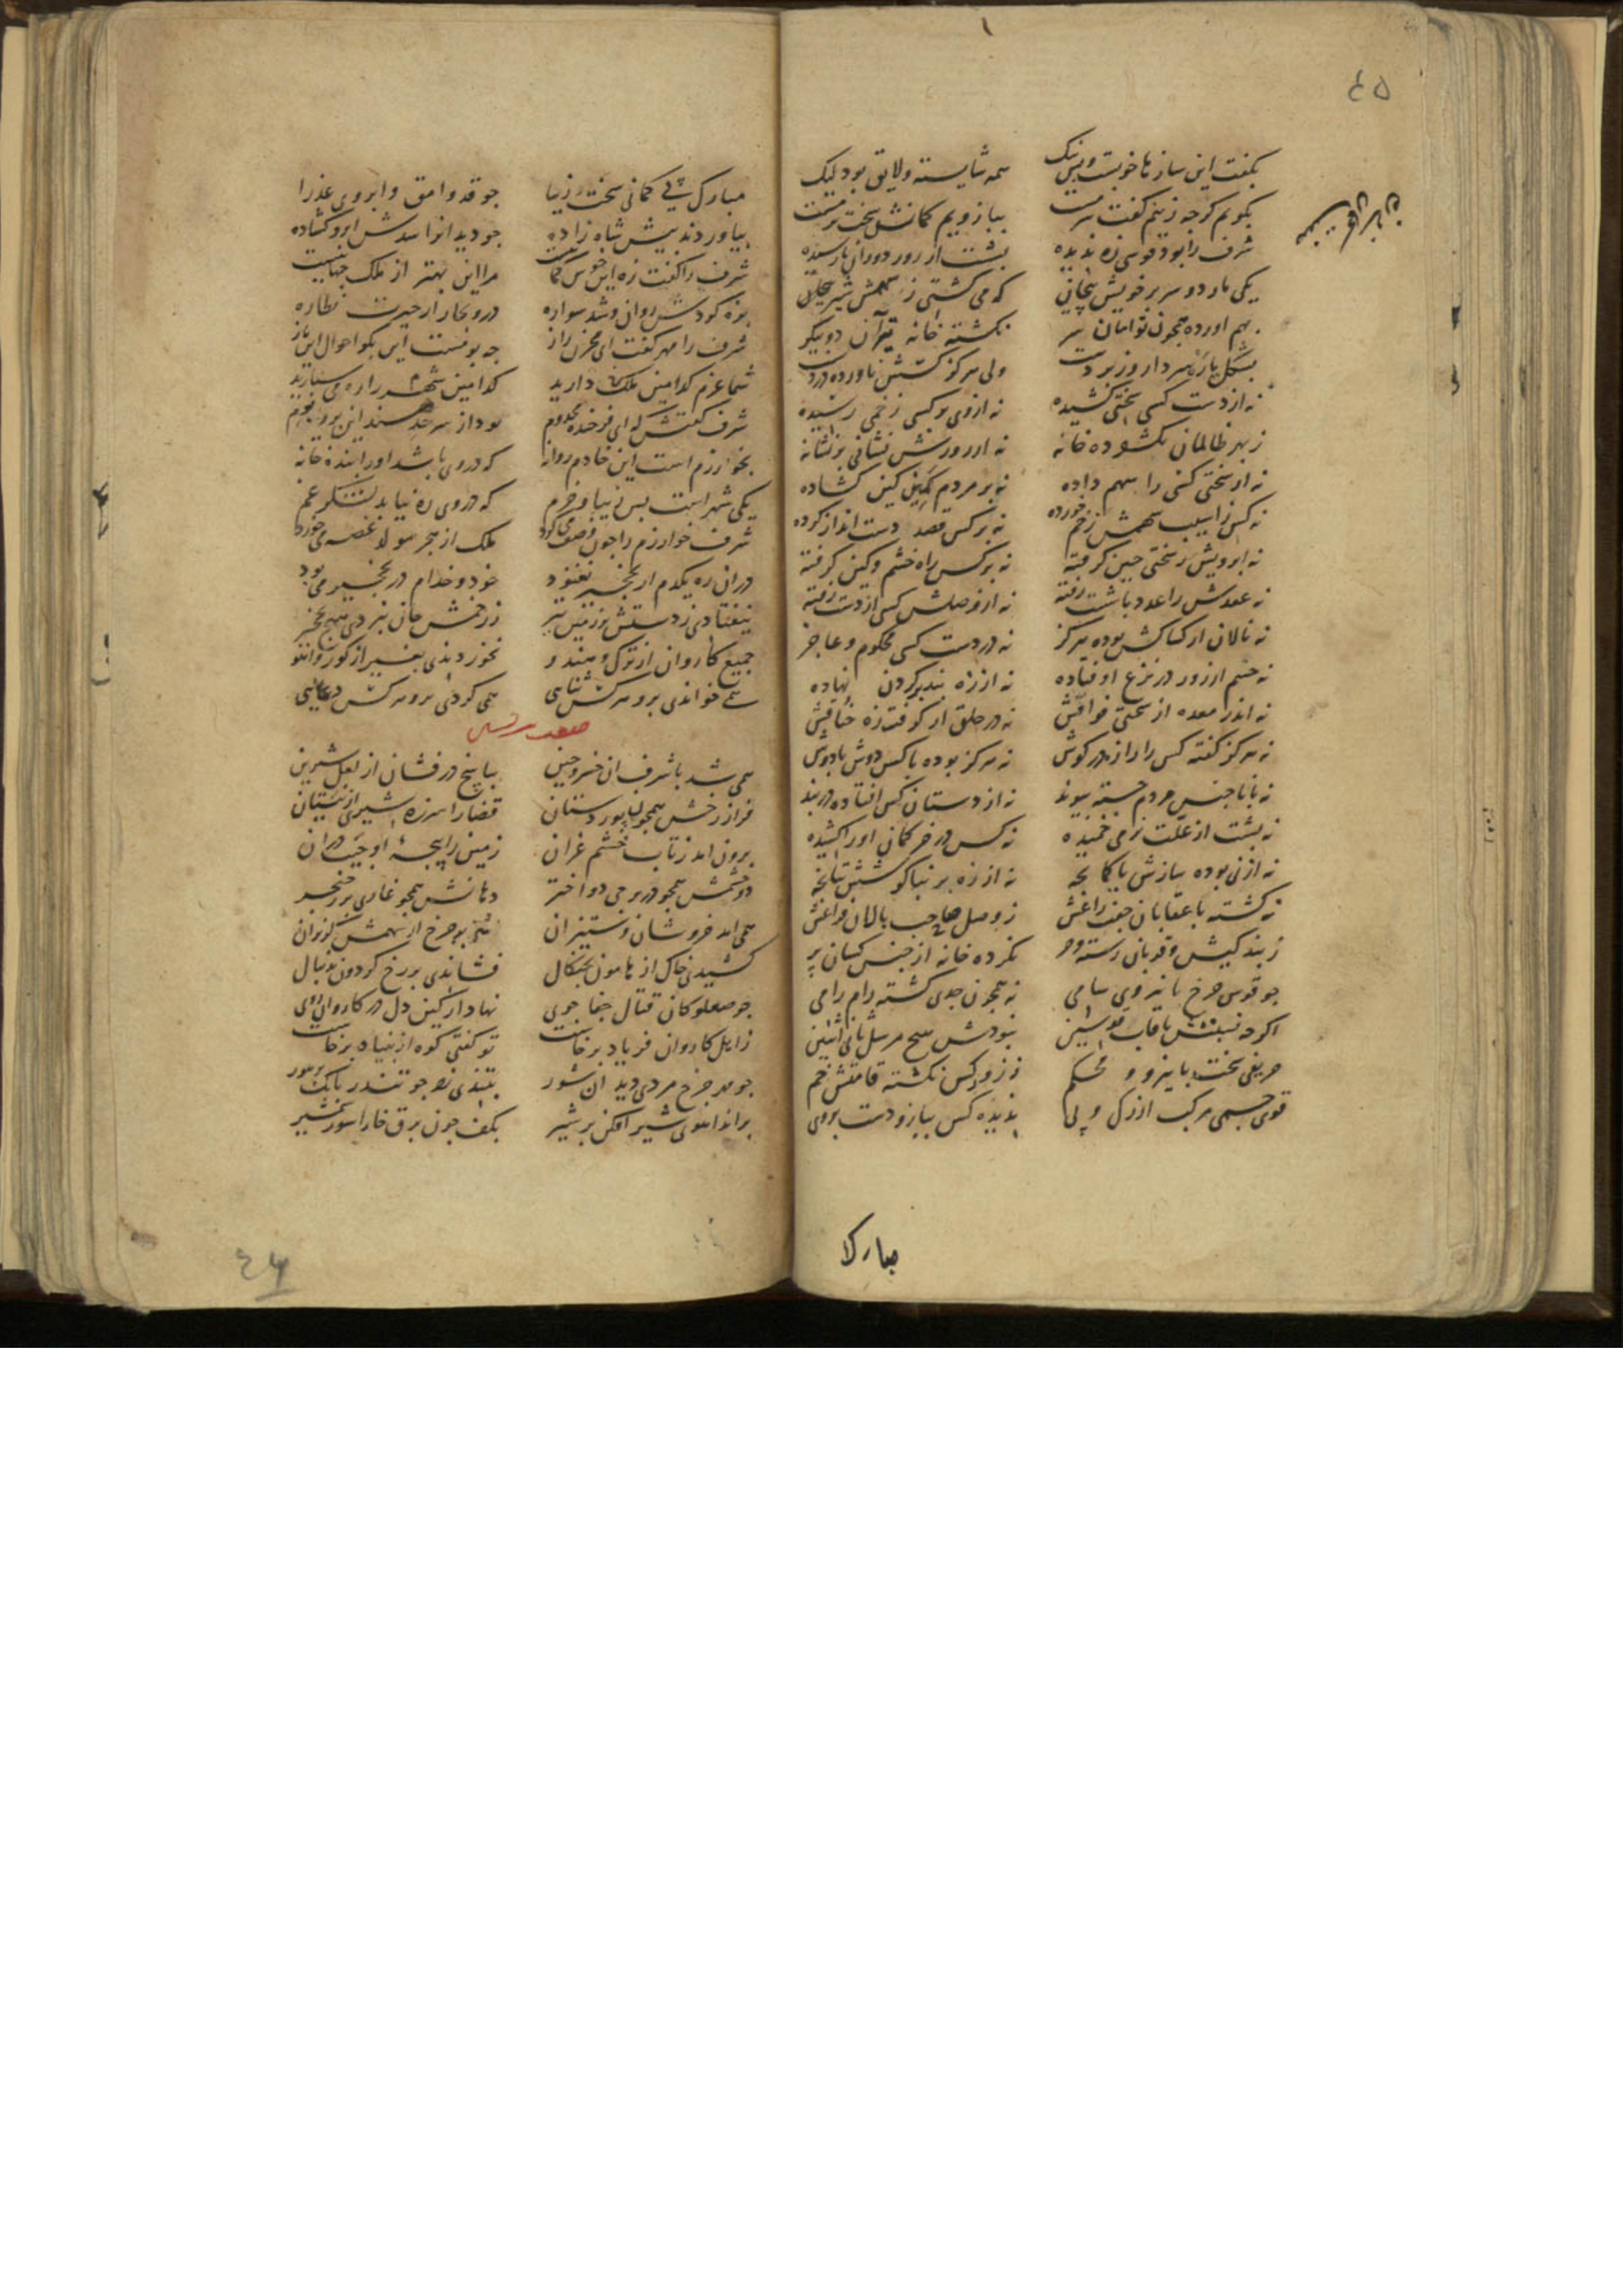 ٤٥
بگفت این سازها خوبست و نیک همه شایسته و لایق بود لیک
بکویم کرچه زینم کفت ببازویم کمانش سخت
شرف را بود قوسی زه ندیده بشست از زور دوران نارسیده
یکی مار دو سر بر خویش پیچان که می کشتی ز سهمش شیر بیجان
بهم اورده همچون توامان سر نکشته خانه تیرآن دو پیکر
بشکل یار سردار وزبردست ولی هرکز کسش ناورده در دست
نه از دست کسی سختی کشیده نه ازوی بر کسی زخمی رسیده
ز بهر ظالمان نکشوده خانه نه از زورش نشانی بر نشانه
نه از سختی کسی را سهم داده نه بر مردم کمین کین کشاده
نه کس ز اسیب سهمش زخم خورده نه بر کس قصد دست انداز کرده
نه ابرویش ز سختی چین کرفته نه بر کس راه خشم و کین کرفته
نه عقدش را عدد با شست رفته نه از وصلش کسی از دست رفته
نه نالان از کشاکش بوده هرکز نه در دست کسی محکوم و عاجز
نه جسم از زور در نزع اوفتاده نه از زه بند بر کردن نهاده
نه اندر معده از سختی فواقش نه در حلق از کرفت زه خناقش
نه هرکز کفته کس را راز در کوش نه هرکز بوده با کس دوش بادوش
نه با ناجنس مردم جسته پیوند نه از دستان کس افتاده در بند
نه پشت از علت نرمی خمیده نه کس در خر کمان او را کشیده
نه از نی بوده سازش با کمانچه نه از زه بر بناکوشش تپانچه
نه کشته با عقابان جفت زاغش ز وصل حاجب بالمان فراغش
ز بند کیش و قربان رسته و حر نکرده خانه از جنس کسان پر
جو قوس چرخ با نیروی سامی نه همچون جدی کشته رام رامی
اکرچه نسبتش با قاب قوسین نبودش هیچ مرسل ثانی اثنین
حریفی سخت با نیرو و محکم ز زور کس نکشته قامتش خم
قوی جسمی مرکب از رک و پی ندیده کس ببازو دست بر وی
مبارک
مبارک پی کمانی سخت زیبا جو قد وامق و ابروی عذرا
بیاوردند پیش شاه زاده جو دید انرا شدش ابرو کشاده
شرف را کفت زه این خوش کمانیست مرا این بهتر از ملک جهانیست
بزه کردش روان و شد سواره در و نظار از حیرت نظاره
شرف را مهر کفت ای مخزن راز جه بومست این بکو احوال این باز
شما عزم کدامین ملک دارید کدامین شهر را ره می سپارید
شرف کفتش که ای فرخنده مخدوم بود از سرحد سند این بر و بوم
بخوارزم است این خادم روانه که در وی باشد او را بنده خانه
یکی شهر است بس زیبا و خرم که در وی ره نیابد لشکر غم
شرف خوارزم را جون وصف می کرد ملک از هجر مه رو غصه می خورد
در ان ره یکدم از نخجیر نغنود خود و خدام در نخجیر می بود
نیفتادی ز دستش بر زمین تیر ز زخمش جان نبردی هیچ نخجیر
جمیع کاروان از ترک و هندو نخوردندی بغیر از کور و اهو
همی خواندی برو هر کس ثنایی همی کردی برو هر کس دعایی
صفت
همی شد با شرف ان خسرو چین بپاسخ در فشان از لعل شیرین
فراز رخش همچون پور دستان قضا را شرزه شیری از نیستان
برون امد ز تاب خشم غران زمین را پنجه او جیب دران
دو چشمش همچو در برجی دو اختر دهانش همچو غاری پر ز خنجر
همی امد خروشان و ستیزان بر چرخ از سهمش کریزان
کشیدی خاک از هامون بچنکال فشاندی بر رخ کردون بدنبال
جو صعلوکان قتال جفا جوی نهاد از کین دل در کاروان روی
ز اهل کاروان فریاد برخاست تو کفتی کوه از بنیاد برخاست
جو مهر چرخ مردی دید ان شور بتندی زد جو تندر بانک
براند اهوی شیر افکن بر شیر بکف جون برق خارا سوز شمشیر
٤٦